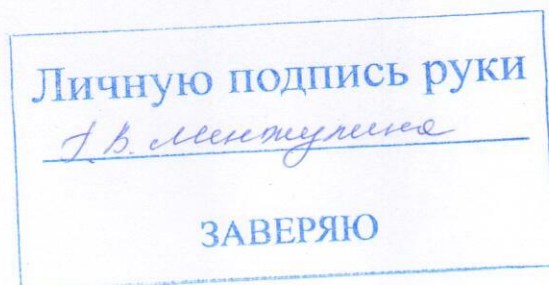 Личную подпись руки
Г.В. Минжулина
ЗАВЕРЯЮ